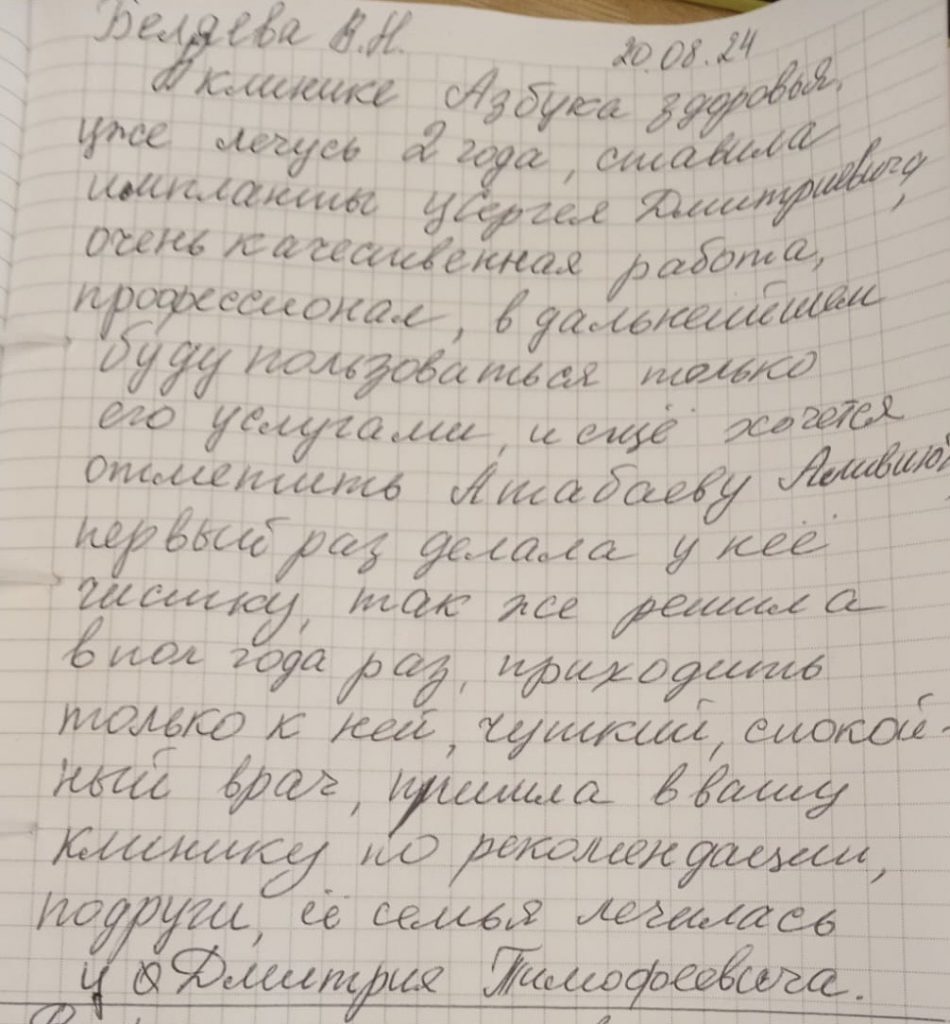 Беляева В.Н. 20.08.24
В клинике Азбука здоровья,
уже лечусь 2 года, ставила
импланты у Сергея Дмитриевича,
очень качественная работа,
профессионал, в дальнейшем
буду пользоваться только
его услугами, и ещё хочется
отметить Атабаеву
первый раз делала у неё
чистку, так же решила
в пол года раз, приходить
только к ней, чуткий, спокой-
ный врач, пришла в вашу
клинику по рекомендации,
подруги, её семья лечилась
у Дмитрия Тимофеевича.